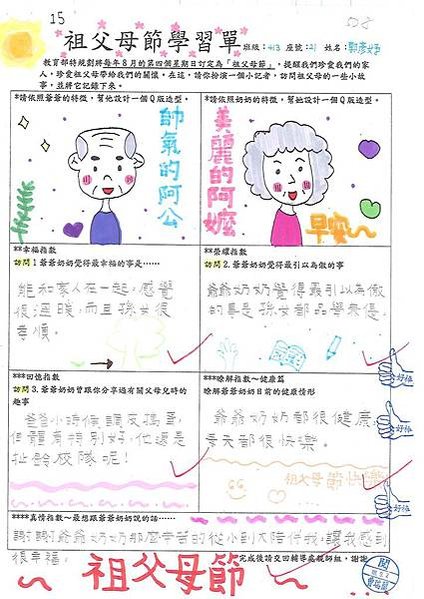 15
祖父母節學習單
班級：413 座號：21 姓名：
教育部特規劃將每年8月的第四個星期日訂定為「祖父母節」，提醒我們珍愛我們的家
人，珍愛祖父母帶給我們的關懷。在這，請你扮演一個小記者，訪問祖父母的一些小故
事，並將它記錄下來。
*請依照爺爺的特徵，幫他設計一個Q版造型。
帥氣的阿公
*請依照奶奶的特徵，幫她設計一個Q版造型。
美麗的阿嬤
早安~
**幸福指數
訪問1爺爺奶奶覺得最幸福的事是……
能和家人在一起，感覺
很溫暖，而且孫女很
孝順。
**榮耀指數
訪問2.爺爺奶奶覺得最引以為傲的事
爺爺奶奶覺得最引以為傲
的事是孫女都品學兼優。
***回憶指數
訪問3.爺爺奶奶曾跟你分享過有關父母兒時的
趣事
爸爸小時候調皮搗蛋，
但體育特別好，他還是
扯鈴校隊呢！
***瞭解指數~健康篇
瞭解爺爺奶奶目前的健康情形
爺爺奶奶都很健康，
每天都很快樂。
祖父母節快樂
好棒
好棒
好棒
****真情指數~最想跟爺爺奶奶說的話……
謝謝爺爺奶奶那麼辛苦的從小到大陪伴我，讓我感到
很幸福。
完成後請交回輔導處親師組，謝謝
~祖父母節~
閱